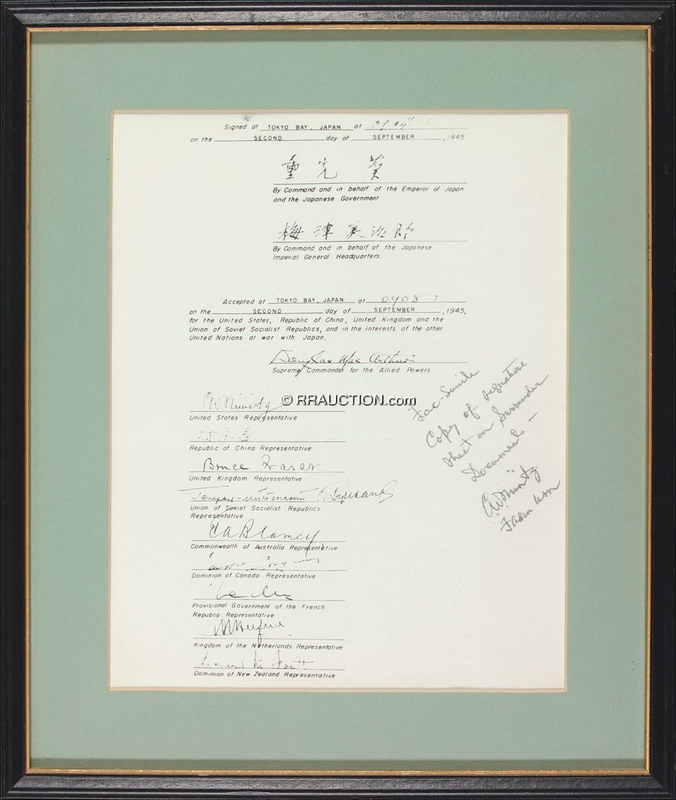 Signed at TOKYO BAY, JAPAN at
on the SECOND day of SEPTEMBER, 1945
重光葵
By Command and in behalf of the Emperor of Japan
and the Japanese Government
梅津美治郎
By Command and in behalf of the Japanese
Imperial General Headquarters
Accepted at TOKYO BAY, JAPAN at 0908
on the SECOND day of SEPTEMBER, 1945,
for the United States, Republic of China, United Kingdom and the
Union of Soviet Socialist Republics, and in the interests of the other
United Nations at war with Japan.
Douglas MacArthur
Supreme Commander for the Allied Powers
© RRAUCTION.com
C.W. Nimitz
United States Representative
Republic of China Representative
Bruce Fraser
United Kingdom Representative
Union of Soviet Socialist Republics
Representative
T A Blamey
Commonwealth of Australia Representative
Dominion of Canada Representative
Provisional Government of the French
Republic Representative
Kingdom of the Netherlands Representative
Dominion of New Zealand Representative
Fac-Simile
Copy of signature
sheet on Surrender
Document—
C.W. Nimitz
Fadm USN